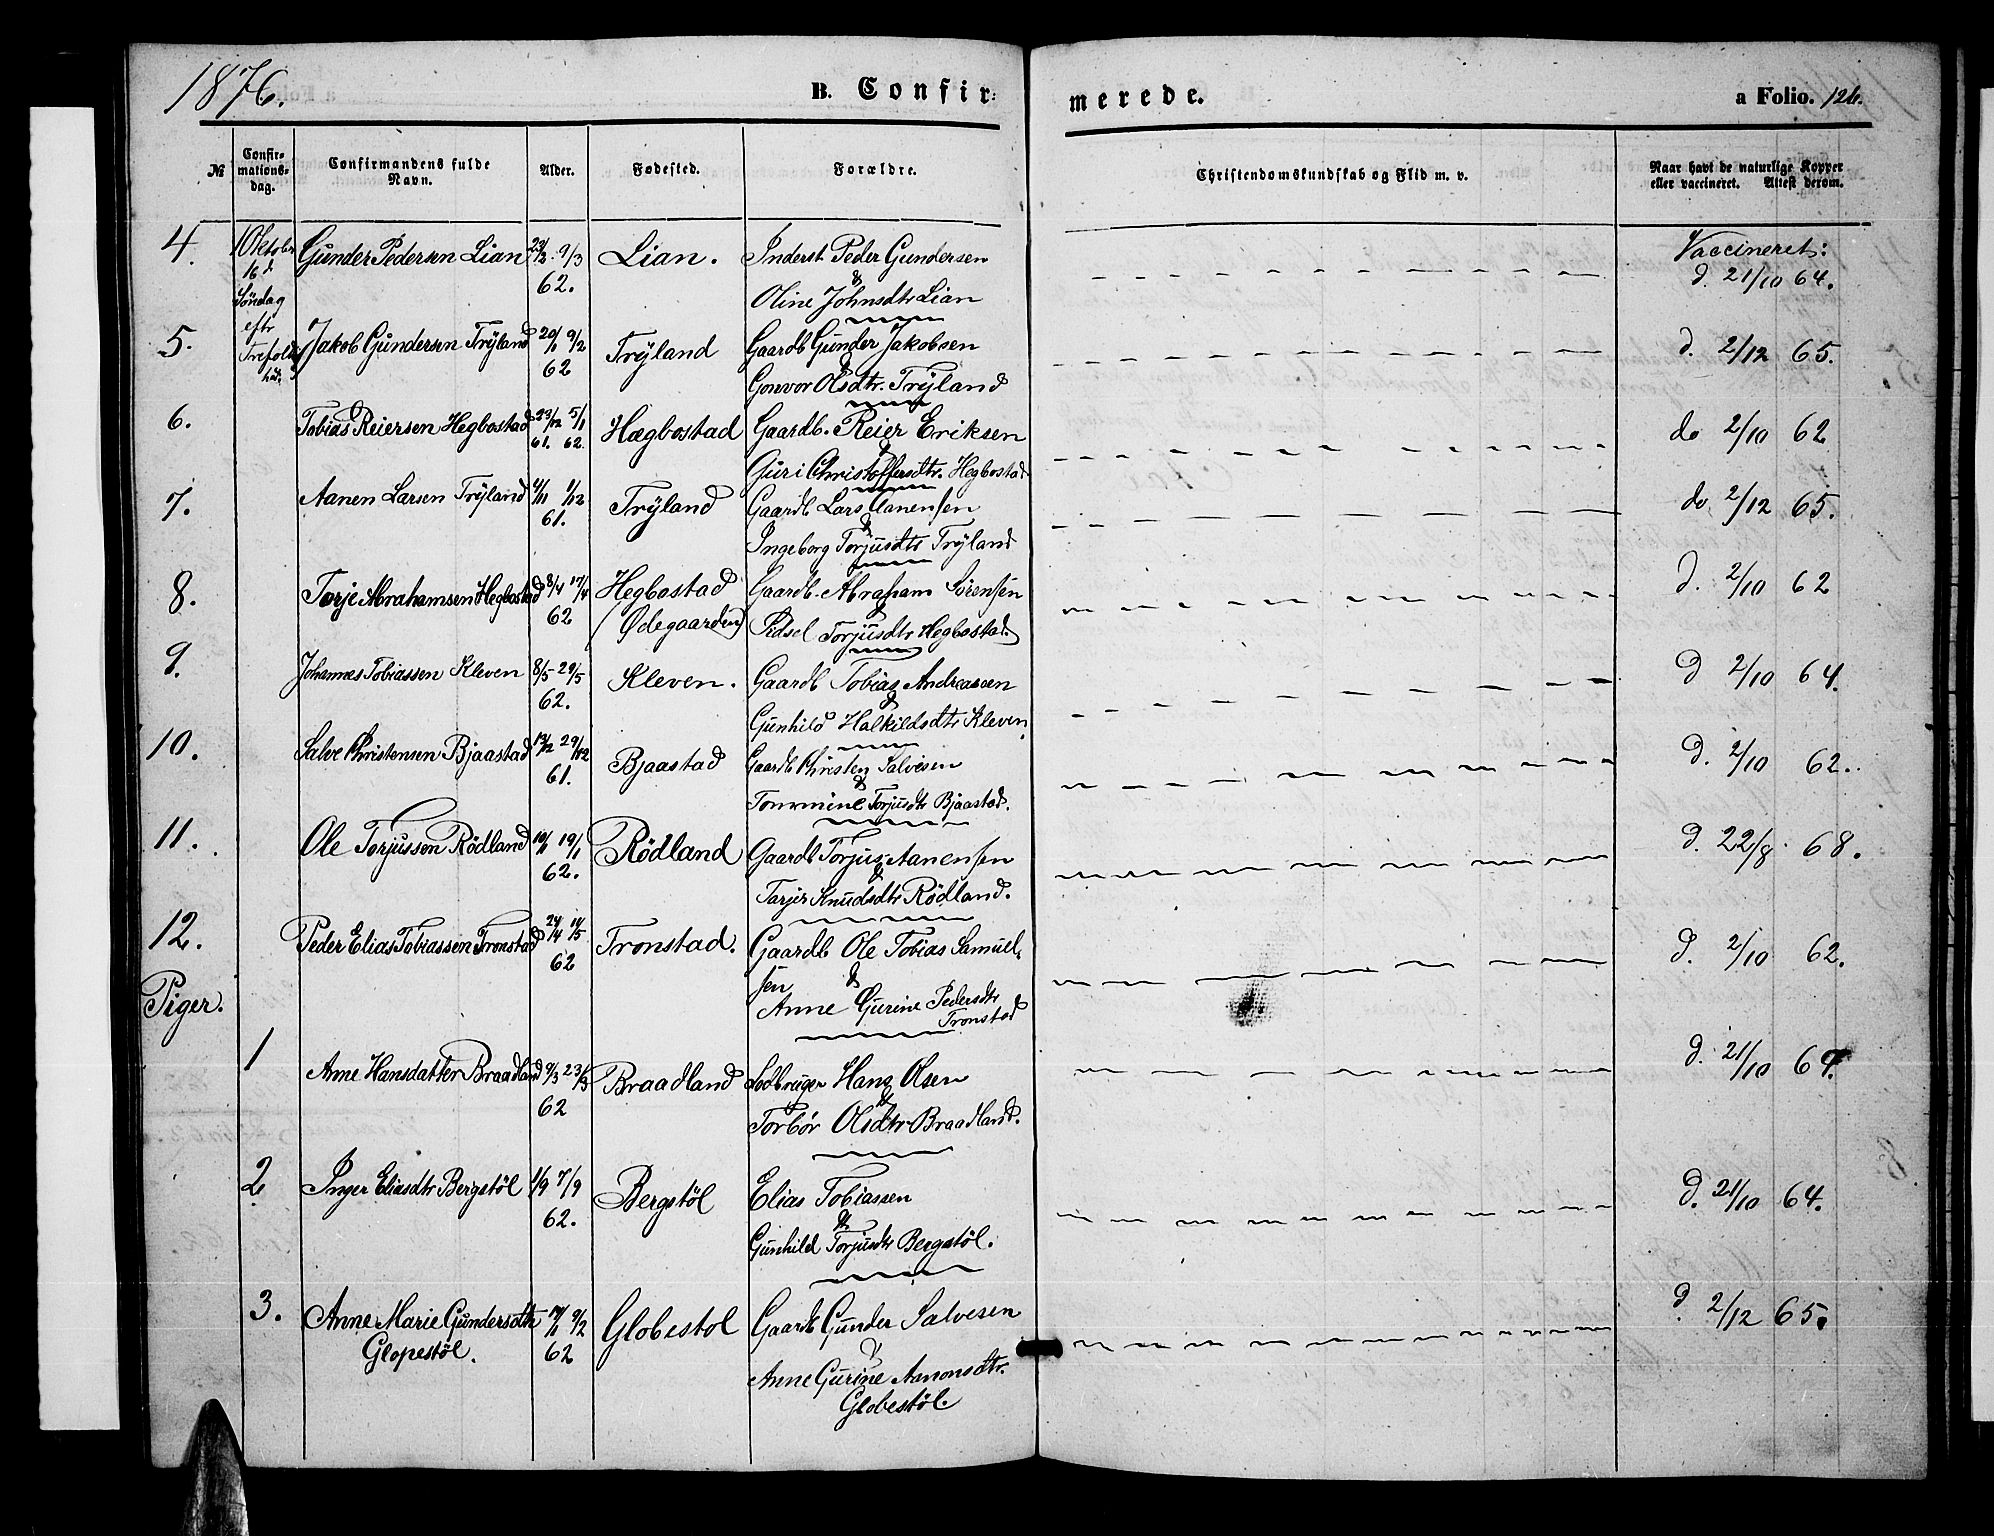 1876.
B. Confir-
merede.
a Folio. 126.
№
Confir-
mations-
dag.
Confirmandens fulde
Navn.
Alder.
Fødested.
Forældre.
Christendomskundskab og Flid m. v.
Naar havt de naturlige Kopper
eller vaccineret. Attest derom.
4. 1 Oktober Gunder Pedersen Lian 9/3 Lian. Inderst Peder Gundersen Vaccineret:
16d 62. & d. 21/10 64.
Søndag Oline Johnsdtr Lian
eftr
5. Jakob Gundersen Trÿland 20/1 9/2 Trÿland Gaardb Gunder Jakobsen d. 2/12 65.
62 &
Gonvor Olsdtr. Trÿland
6. Tobias Reiersen Hegbostad 23/12 5/1 Hægbostad Gaardb. Reier Eriksen do 2/10 62
61. 62. &
Guri Christoffersdtr. Hegbostad
7. Aanen Larsen Trÿland 4/11 1/12 Trÿland Gaardb Lars Aanensen do 2/12 65.
61. &
Ingeborg Torjusdtr Trÿland
8. Torje Abrahamsen Hegbostad 8/4 17/4 Hegbostad Gaardb. Abraham Sørensen d. 2/10 62
62 (Ødegaarden) &
Sidsel Torjusdtr Hegbostad.
9. Johannes Tobiassen Kleven 8/5 29/5 Kleven. Gaardb Tobias Andreasen d 2/10 64.
62. &
Gunhild Halkildsdtr Kleven.
10. Salve Christensen Bjaastad 13/12 29/12 Bjaastad Gaardb Christen Salvesen d. 2/10 62.
61. &
Tommine Torjusdtr Bjaastad.
11. Ole Torjussen Rödland 10/1 19/1 Rödland Gaardb Torjus Aanensen d. 22/8 68.
62. &
Tarjer Knudsdtr Rödland.
12. Peder Elias Tobiassen Tronstad 24/4 11/5 Tronstad. Gaardb Ole Tobias Samuel- d. 2/10 62.
62 sen &
Anne Gurine Pedersdtr
Tronstad
Piger.
1 Anne Hansdatter Braadland 9/3 23/3 Braadland Lodbruger Hans Olsen d. 21/10 64.
62 &
Torbör Olsdtr Braadland.
2 Inger Eliasdtr Bergstöl 1/9 7/9 Bergstöl Elias Tobiassen d. 21/10 64.
62. &
Gunhild Torjusdtr Bergstöl.
3. Anne Marie Gundersdtr 9/2 Globestol Gaardb Gunder Salvesen d 2/12 65.
Glopestöl. 62 &
Anne Gurine Aanonsdtr.
Globestöl.